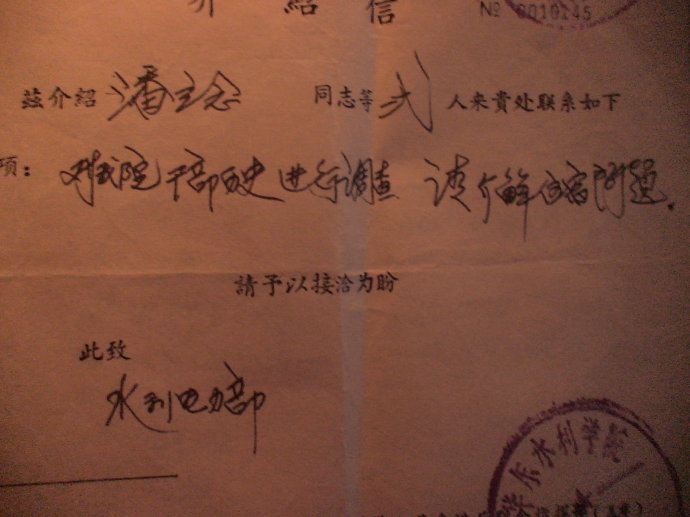 介 紹 信
№ 0010245
茲介紹 潘 同志等 弍 人来貴处联系如下
項： 对我院干部历史进行调查 请介解 问题.
請予以接洽为盼
此致
水利电力部
华东水利学院